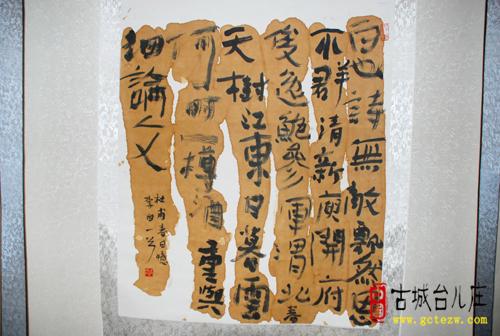 白也詩無敵飄然思
不群清新庾開府
俊逸鮑參軍渭北春
天樹江東日暮雲
何時一樽酒重與
細論文
杜甫春日憶
李白一首
古城台儿庄
www.gctezw.com